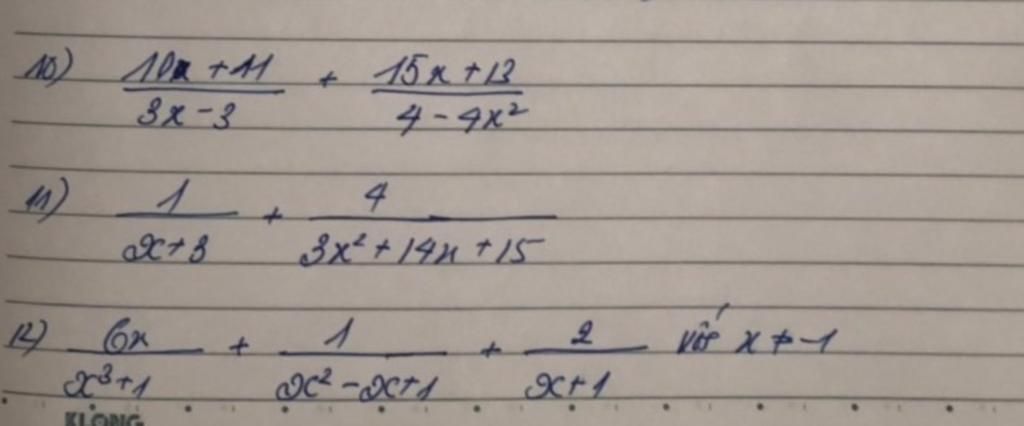 10) (10x + 11)/(3x - 3) + (15x + 13)/(4 - 4x²)
11) 1/(x + 3) + 4/(3x² + 14x + 15)
12) 6x/(x³ + 1) + 1/(x² - x + 1) + 2/(x + 1) với x ≠ -1
KLONG